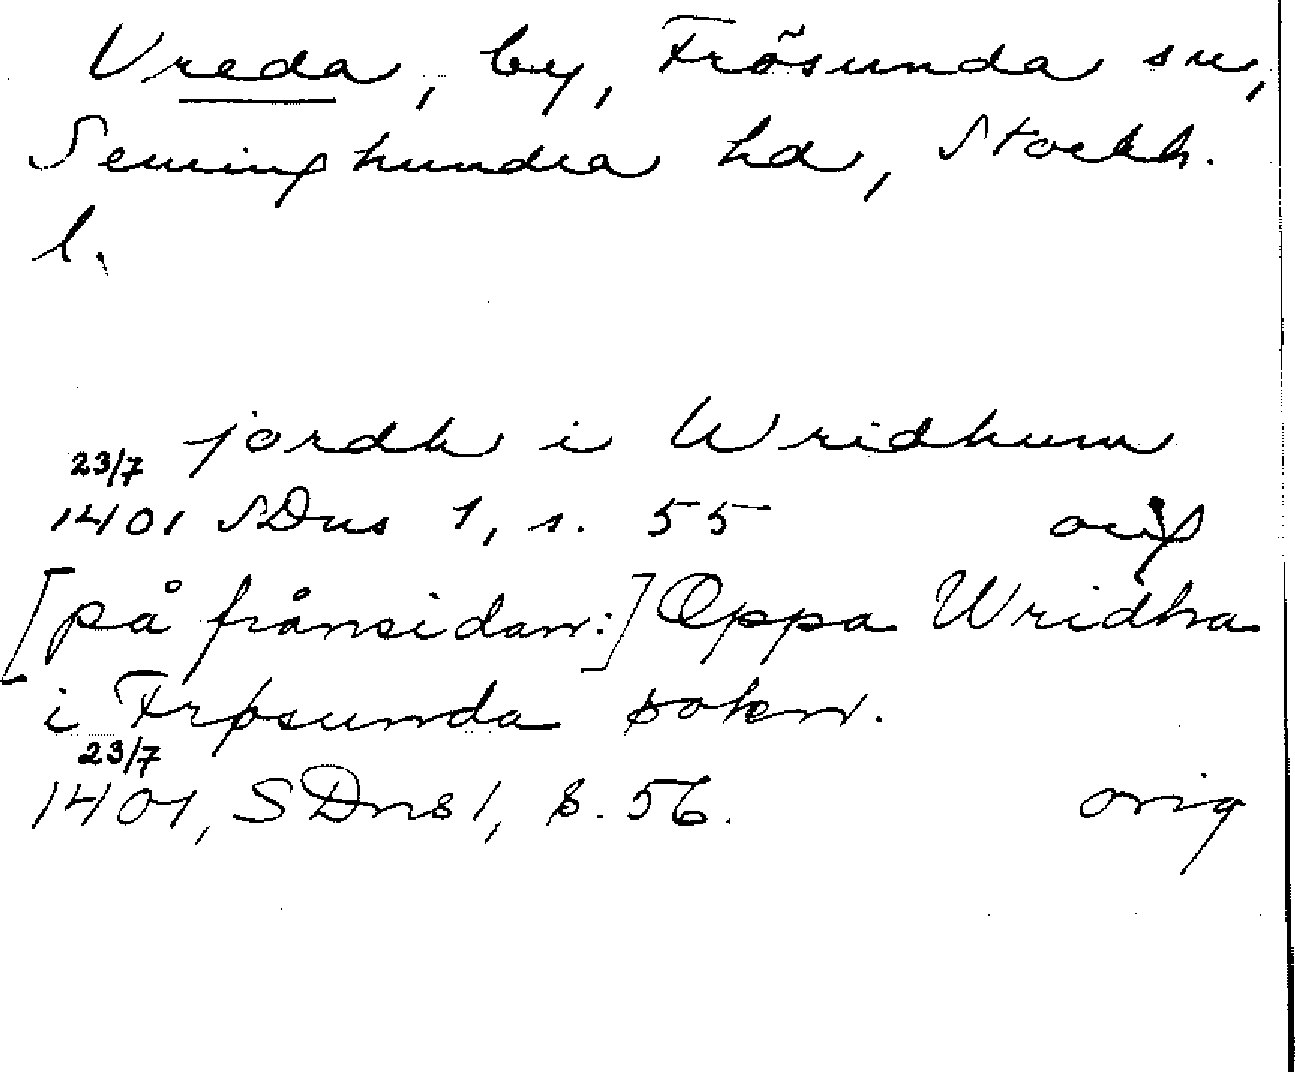 Vreda, by, Frösunda sn,
Seminghundra hd, Stockh.
l.
jordh i Wridhum
23/7
1401 SDns 1, s. 55 orig
[på frånsidan:] Oppa Wridha
i Frøsunda sokn.
23/7
1401, SDns 1, s. 56. orig